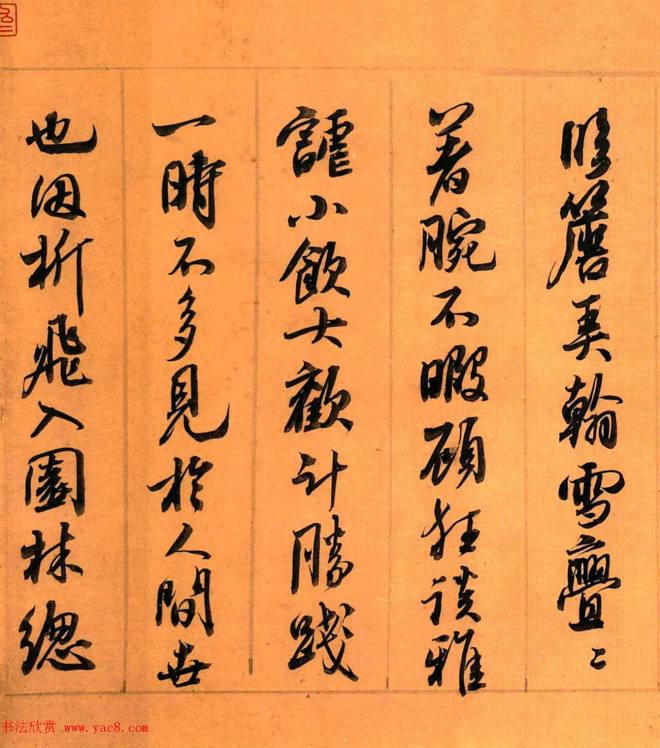 臨簷弄翰雪亹〻
著腕不暇顧狂談雅
謔小飲大歡計勝踐
一時不多見於人間世
也因析飛入園林總
书法欣赏 www.yac8.com